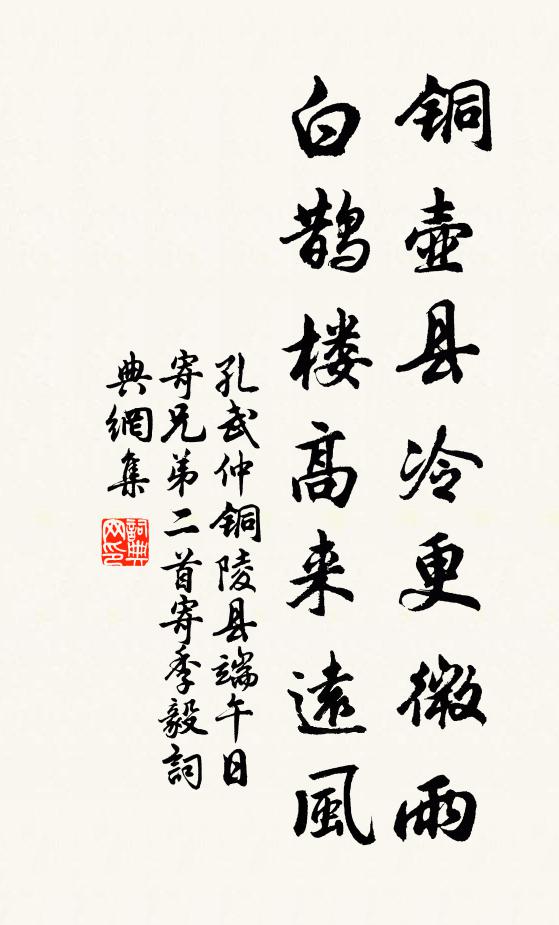 铜壶县冷更微雨
白鹊楼高来远風
孔武仲铜陵县端午日
寄兄弟二首寄季毅詞
典網集
詞典網印